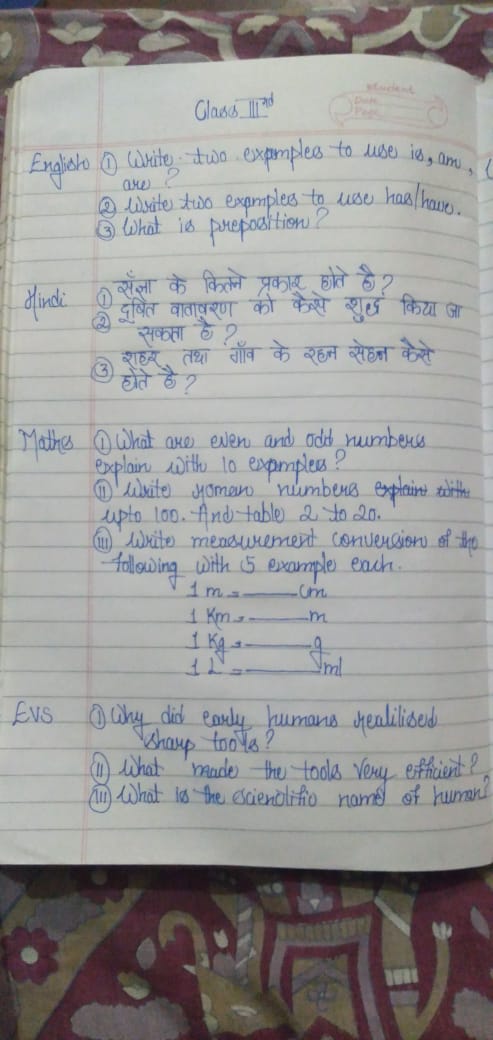 Student
Date
Page
Class IIIrd
English ① Write two examples to use is, am,
are ?
② Write two examples to use has/have.
③ What is preposition ?
Hindi ① सँज्ञा के कितने प्रकार होते है ?
② दूषित वातावरण को कैसे शुद्ध किया जा
सकता है ?
③ शहर तथा गाँव के रहन सेहन कैसे
होते है ?
Maths ① What are even and odd numbers
explain with 10 examples ?
(ii) Write roman numbers explain with
upto 100. And table 2 to 20.
(iii) Write measurement conversion of the
following with 5 example each.
1 m = ——— cm
1 Km = ——— m
1 Kg = ——— g
1 L = ——— ml
EVS ① Why did early humans realilised
sharp tools ?
(ii) What made the tools very efficient ?
(iii) What is the scienditific name of human?